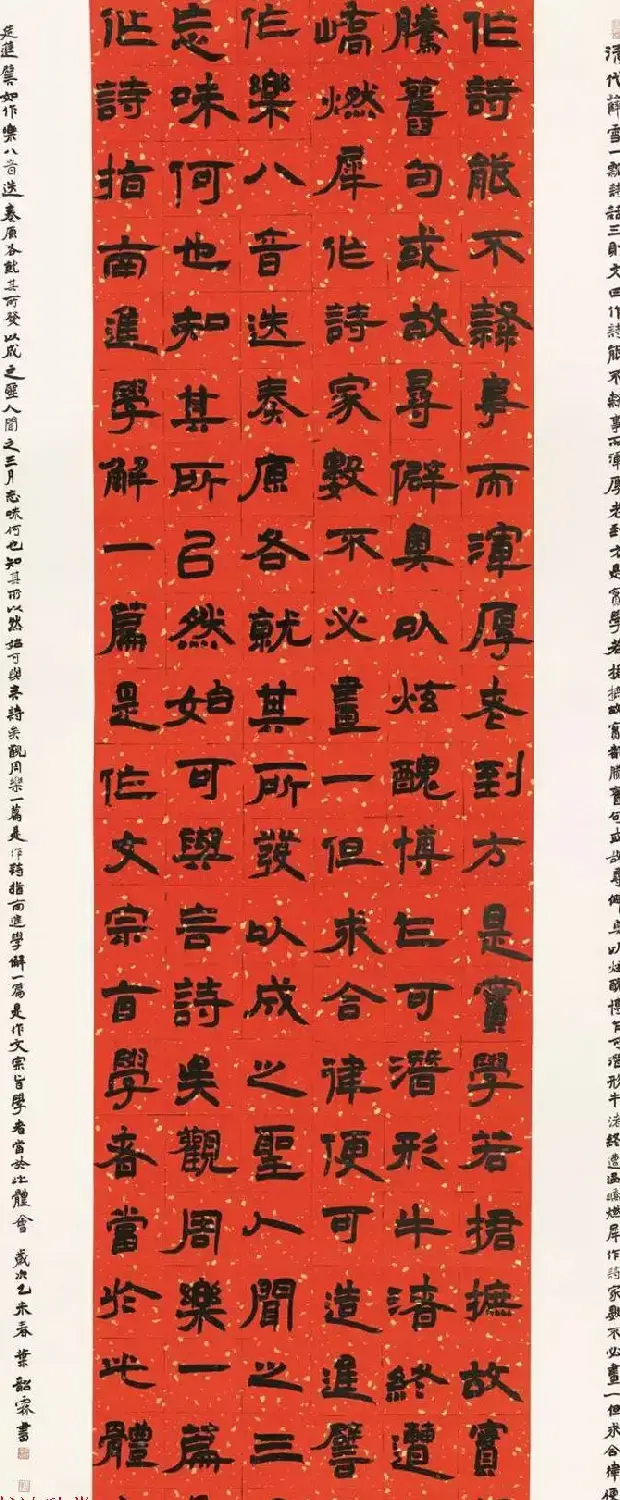 清代薛雪一瓢詩話三則文曰作詩能不隸事而渾厚老到方是實學若捃摭故實翻騰舊句或故尋僻奧以炫醜博乍可潛形牛渚終遭溫嶠燃犀作詩家數不必畫一但求合律便
作詩能不隸事而渾厚老到方是實學若捃摭故實
騰舊句或故尋僻奧以炫醜博乍可潛形牛渚終遭
嶠燃犀作詩家數不必畫一但求合律便可造進譬
作樂八音迭奏原各就其所發以成之聖人聞之三
忘味何也知其所以然始可與言詩矣觀周樂一篇
作詩指南進學解一篇是作文宗旨學者當於此體
造進譬如作樂八音迭奏原各就其所發以成之聖人聞之三月忘味何也知其所以然始可與言詩矣觀周樂一篇是作詩指南進學解一篇是作文宗旨學者當於此體會 歲次乙未春 葉韶霖書